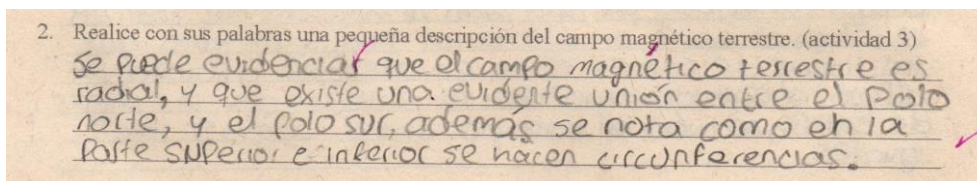 2. Realice con sus palabras una pequeña descripción del campo magnético terrestre. (actividad 3)
Se puede evidenciar que el campo magnético terrestre es
radial, y que existe una evidente unión entre el polo
norte, y el polo sur, además se nota como en la
parte superior e inferior se hacen circunferencias.